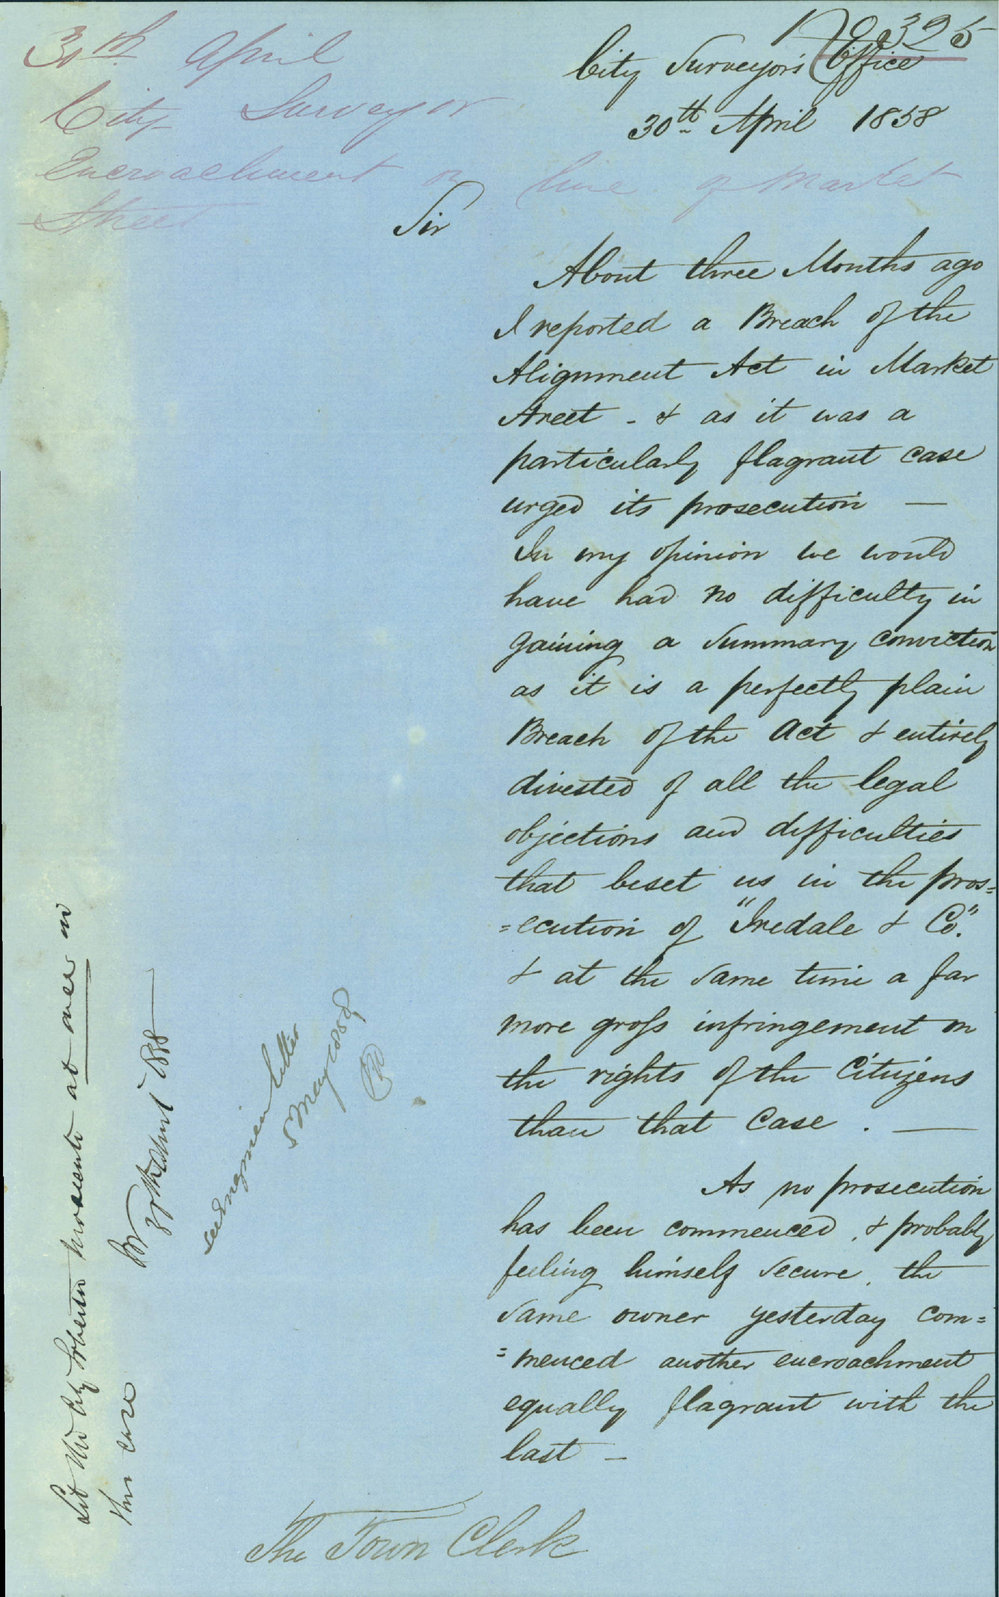 No 325
30th April
City Surveyor
Encroachment on line of Market
Street
City Surveyor's Office
30th April 1858
Sir
About three Months ago
I reported a Breach of the
Alignment Act in Market
Street - & as it was a
particularly flagrant case
urged its prosecution —
In my opinion we would
have had no difficulty in
gaining a summary conviction
as it is a perfectly plain
Breach of the Act & entirely
divested of all the legal
objections and difficulties
that beset us in the pros=
=ecution of "Iredale & Co."
& at the same time a far
more gross infringement on
the rights of the Citizens
than that Case . —
As no prosecution
has been commenced, & probably
feeling himself secure, the
same owner yesterday com=
=menced another encroachment
equally flagrant with the
last —
The Town Clerk
Let the City Solicitor prosecute at once in
this case
30th April 1858
letter
5 May